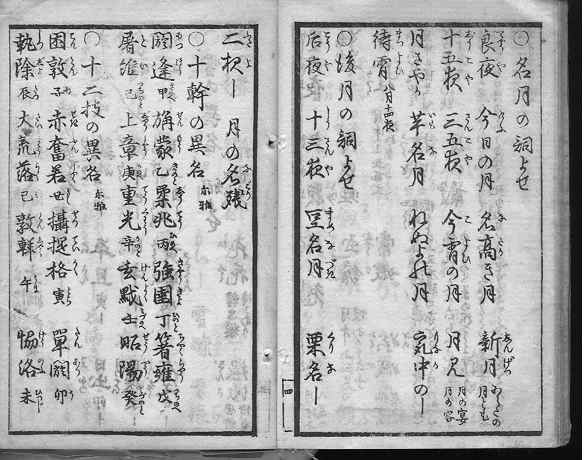 ○名月の詞よせ
良夜 今日の月 名高き月 新月
十五夜 三五夜 今宵の月 月見 月の宴 月の客
月さやか 芋名月 ねぬよの月 最中の｜
待宵 八月十四夜
○後月の詞よせ
后夜 十三夜 豆名月 栗名｜
二夜｜ 月の名残
○十幹の異名 尓雅
閼逢 甲 旃蒙 乙 柔兆 丙 強圉 丁 著雍 戊
屠維 己 上章 庚 重光 辛 玄黓 壬 昭陽 癸
○十二枝の異名 尓雅
困敦 子 赤奮若 丑 攝提格 寅 單閼 卯
執除 辰 大荒落 巳 敦牂 午 協洽 未